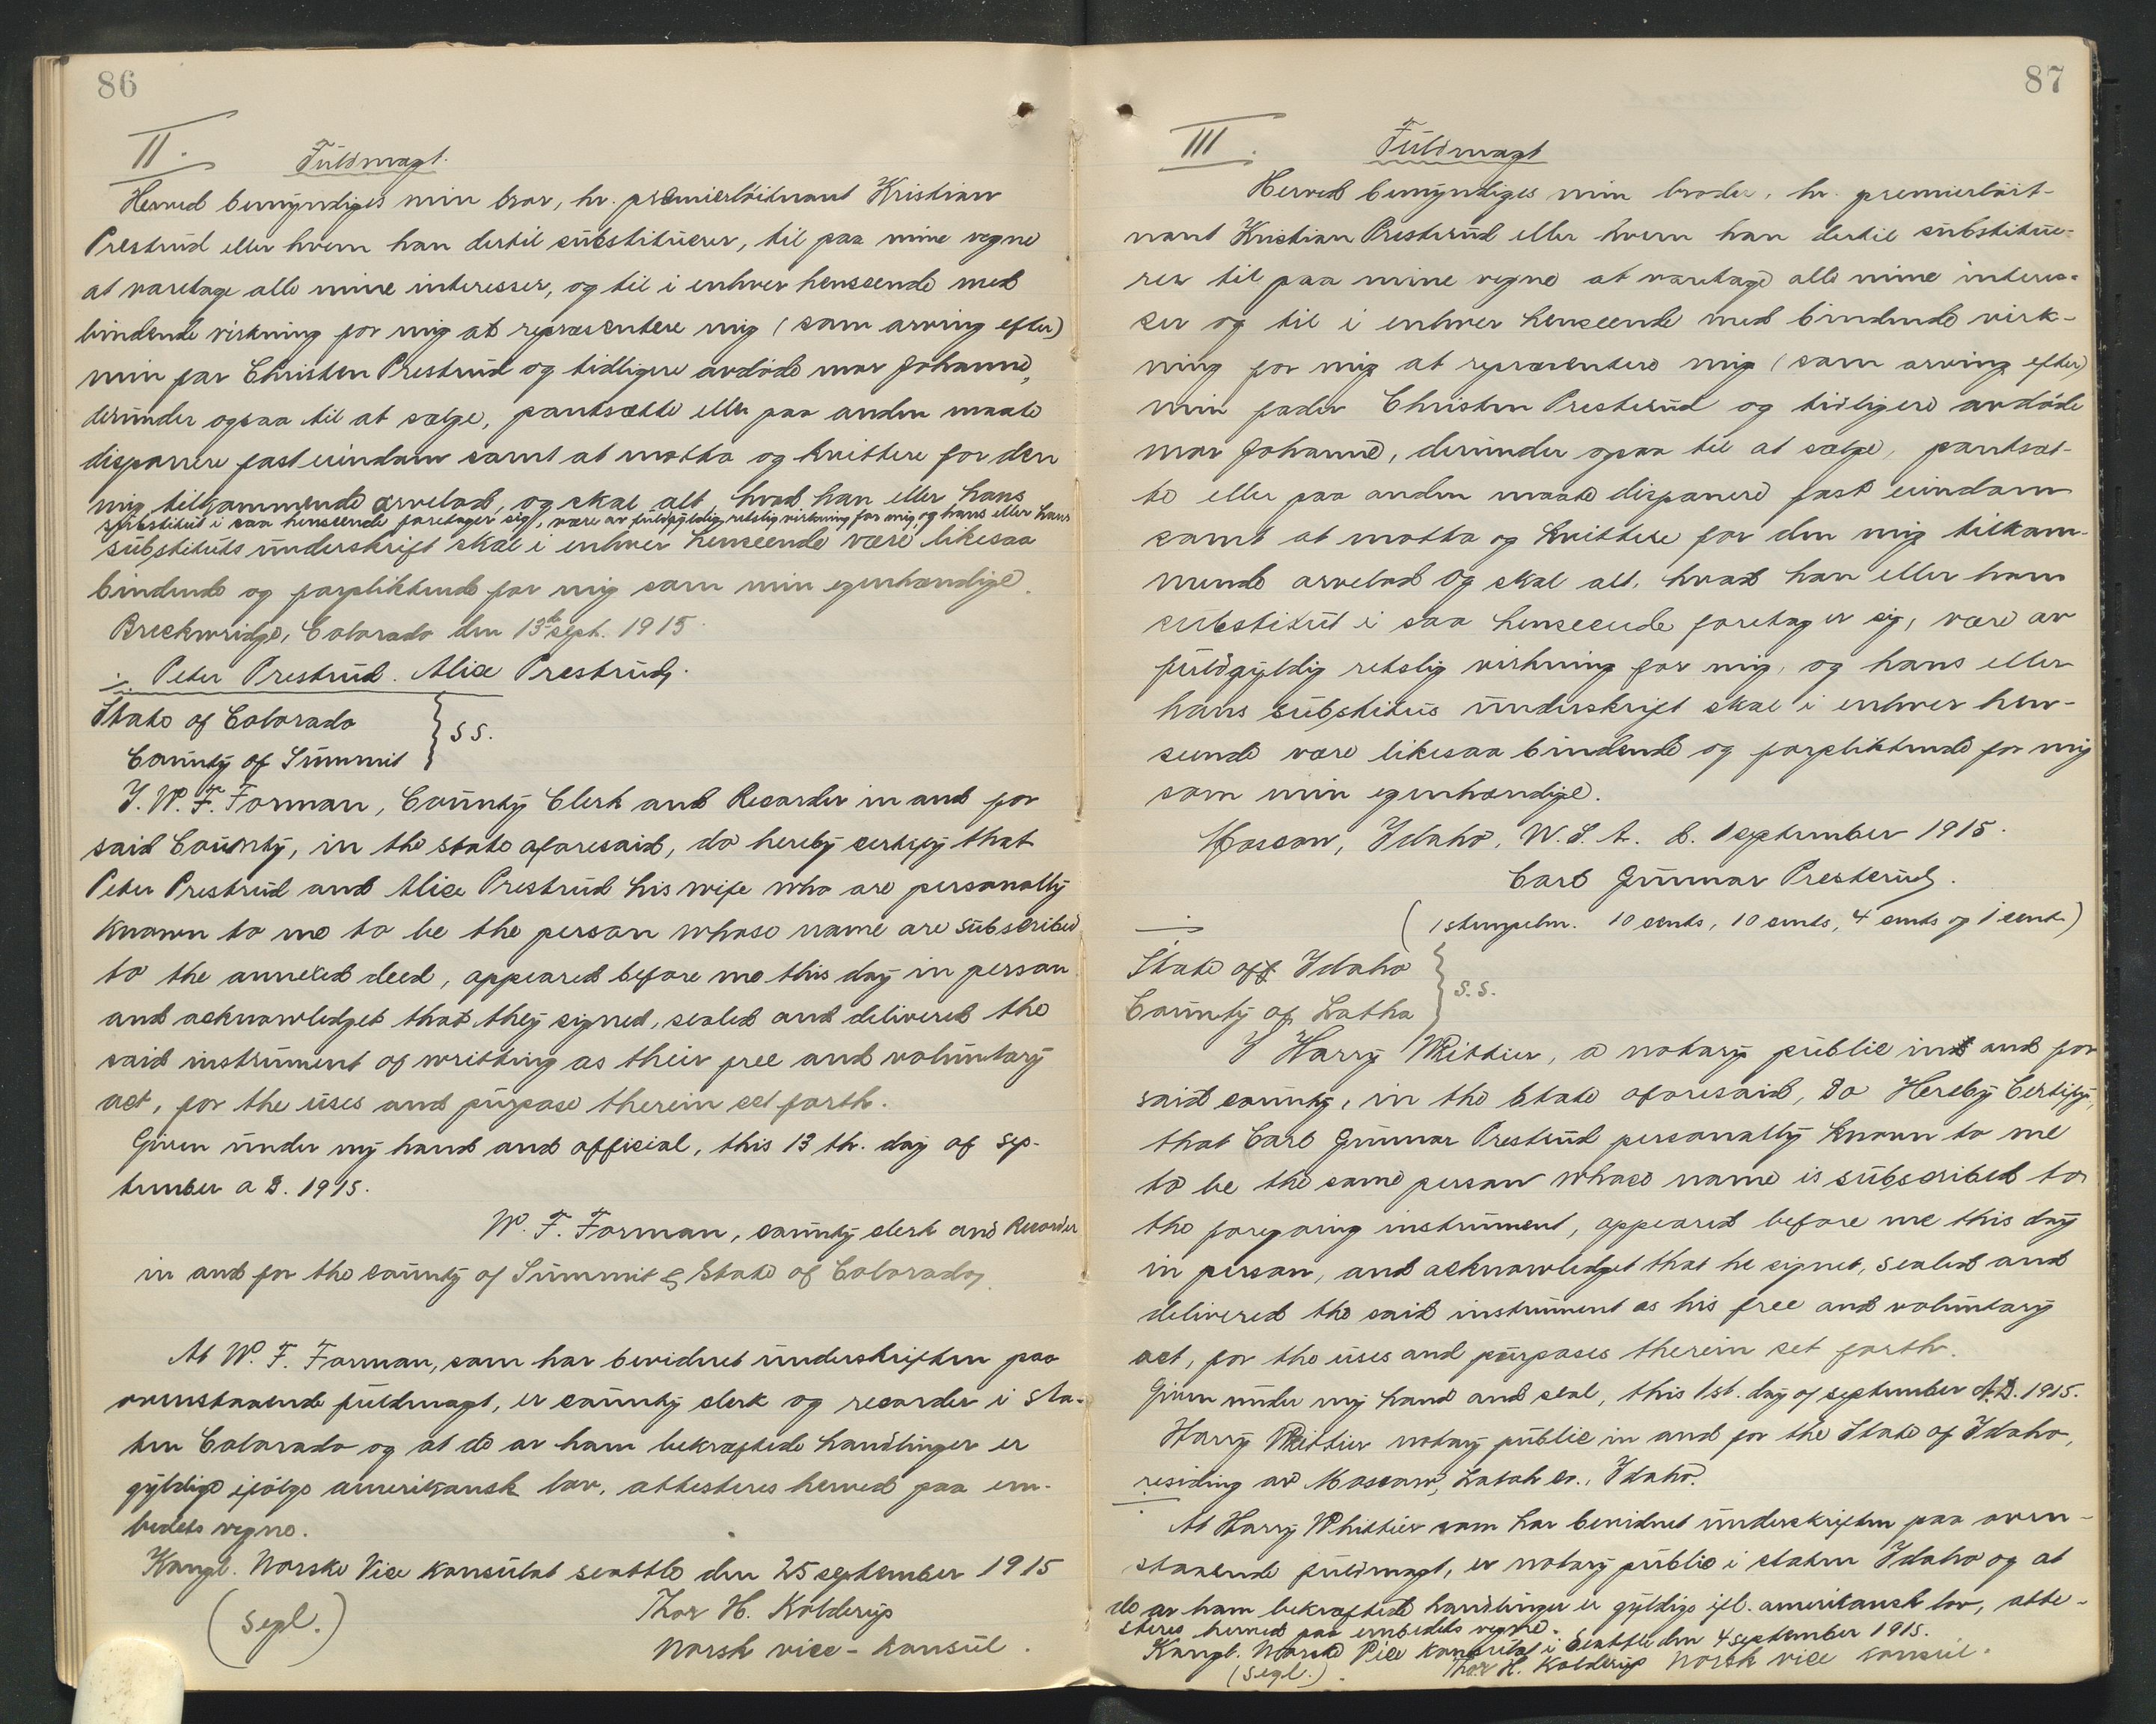 86
II.
Fuldmagt.
Herved bemyndiges min bror, hr. premierløitnant Kristian
Prestrud eller hvem han dertil substituerer, til paa mine vegne
at varetage alle mine interesser, og til i enhver henseende med
bindende virkning for mig at repræsentere mig (som arving efter)
min far Christen Prestrud og tidligere avdøde mor Johanne,
derunder ogsaa til at sælge, pantsætte eller paa anden maate
disponere fast eiendom samt at motta og kvittere for den
mig tilkommende arvelod, og skal alt hvad han eller hans
substitut i saa henseende foretager sig, være av fuldgyldig retslig virkning for mig, og hans eller hans
substituts underskrift skal i enhver henseende være likesaa
bindende og forpliktende for mig som min egenhændige.
Breckenridge, Colorado den 13de sept. 1915.
Peter Prestrud. Alice Prestrud.
State of Colorado
County of Summit } s s.
I. W. F. Forman, County Clerk and Recorder in and for
said County, in the state aforesaid, do hereby certify that
Peter Prestrud and Alice Prestrud his wife who are personally
known to me to be the person whose name are subscribed
to the annexed deed, appeared before me this day in person
and acknowledget that they signed, sealed and delivered the
said instrument of writting as their free and voluntary
act, for the uses and purpose therein set forth.
Given under my hand and official, this 13 th. day of sep-
tember a D. 1915.
W. F. Forman, county clerk and Recorder
in and for the county of Summit & State of Colorado,
At W. F. Forman, som har bevidnet underskriften paa
ovenstaaende fuldmagt, er county clerk og recorder i sta-
ten Colorado og at de av ham bekræftede handlinger er
gyldige ifølge amerikansk lov, attesteres herved paa em-
bedets vegne.
Kongl. Norske Vice konsulat seattle den 25 september 1915
(segl.)
Thor H. Kolderup
Norsk vice-konsul.
87
III.
Fuldmagt
Herved bemyndiges min broder, hr. premierløit-
nant Kristian Presterud eller hvem han dertil substitue-
rer til paa mine vegne at varetage alle mine interes-
ser og til i enhver henseende med bindende virk-
ning for mig at repræsentere mig (som arving efter)
min fader Christen Presterud og tidligere avdøde
mor Johanne, derunder ogsaa til at sælge, pantsæt-
te eller paa anden maate disponere fast eiendom
samt at motta og kvittere for den mig tilkom-
mende arvelod og skal alt, hvad han eller hans
substitut i saa henseende foretager sig, være av
fuldgyldig retslig virkning for mig, og hans eller
hans substitus underskrift skal i enhver hen-
seende være likesaa bindende og forpliktende for mig
som min egenhændige.
Moscow, Idaho, U. S. A. d. 1 september 1915.
Carl Gunnar Presterud.
(1 stempelm. 10 cents, 10 cents, 4 cents og 1 cent)
State off Idaho
County of Latha } s.s.
I Harry Whittier, a notary public in and for
said county, in the State aforesaid, Do Hereby Certify,
that Carl Gunnar Prestrud personally known to me
to be the same person whose name is subscribed to
the foregoing instrument, appeared before me this day
in person, and acknowledget that he signet, sealed and
delivered the said instrument as his free and voluntary
act, for the uses and purposes therein set forth.
Given under my hand and seal, this 1st. day of september A.D. 1915.
Harry Whittier notary public in and for the State of Idaho,
residing at Moscow, Latah co., Idaho.
At Harry Whittier som har bevidnet underskriften paa oven-
staaende fuldmagt, er notary public i staten Idaho og at
de av ham bekræftede handlinger er gyldige ifl. amerikansk lov, atte-
steres herved paa embedets vegne.
Kongl. Norske Vice Konsulat i Seattle den 4 september 1915.
(segl.) Thor H. Kolderup Norsk vice consul.